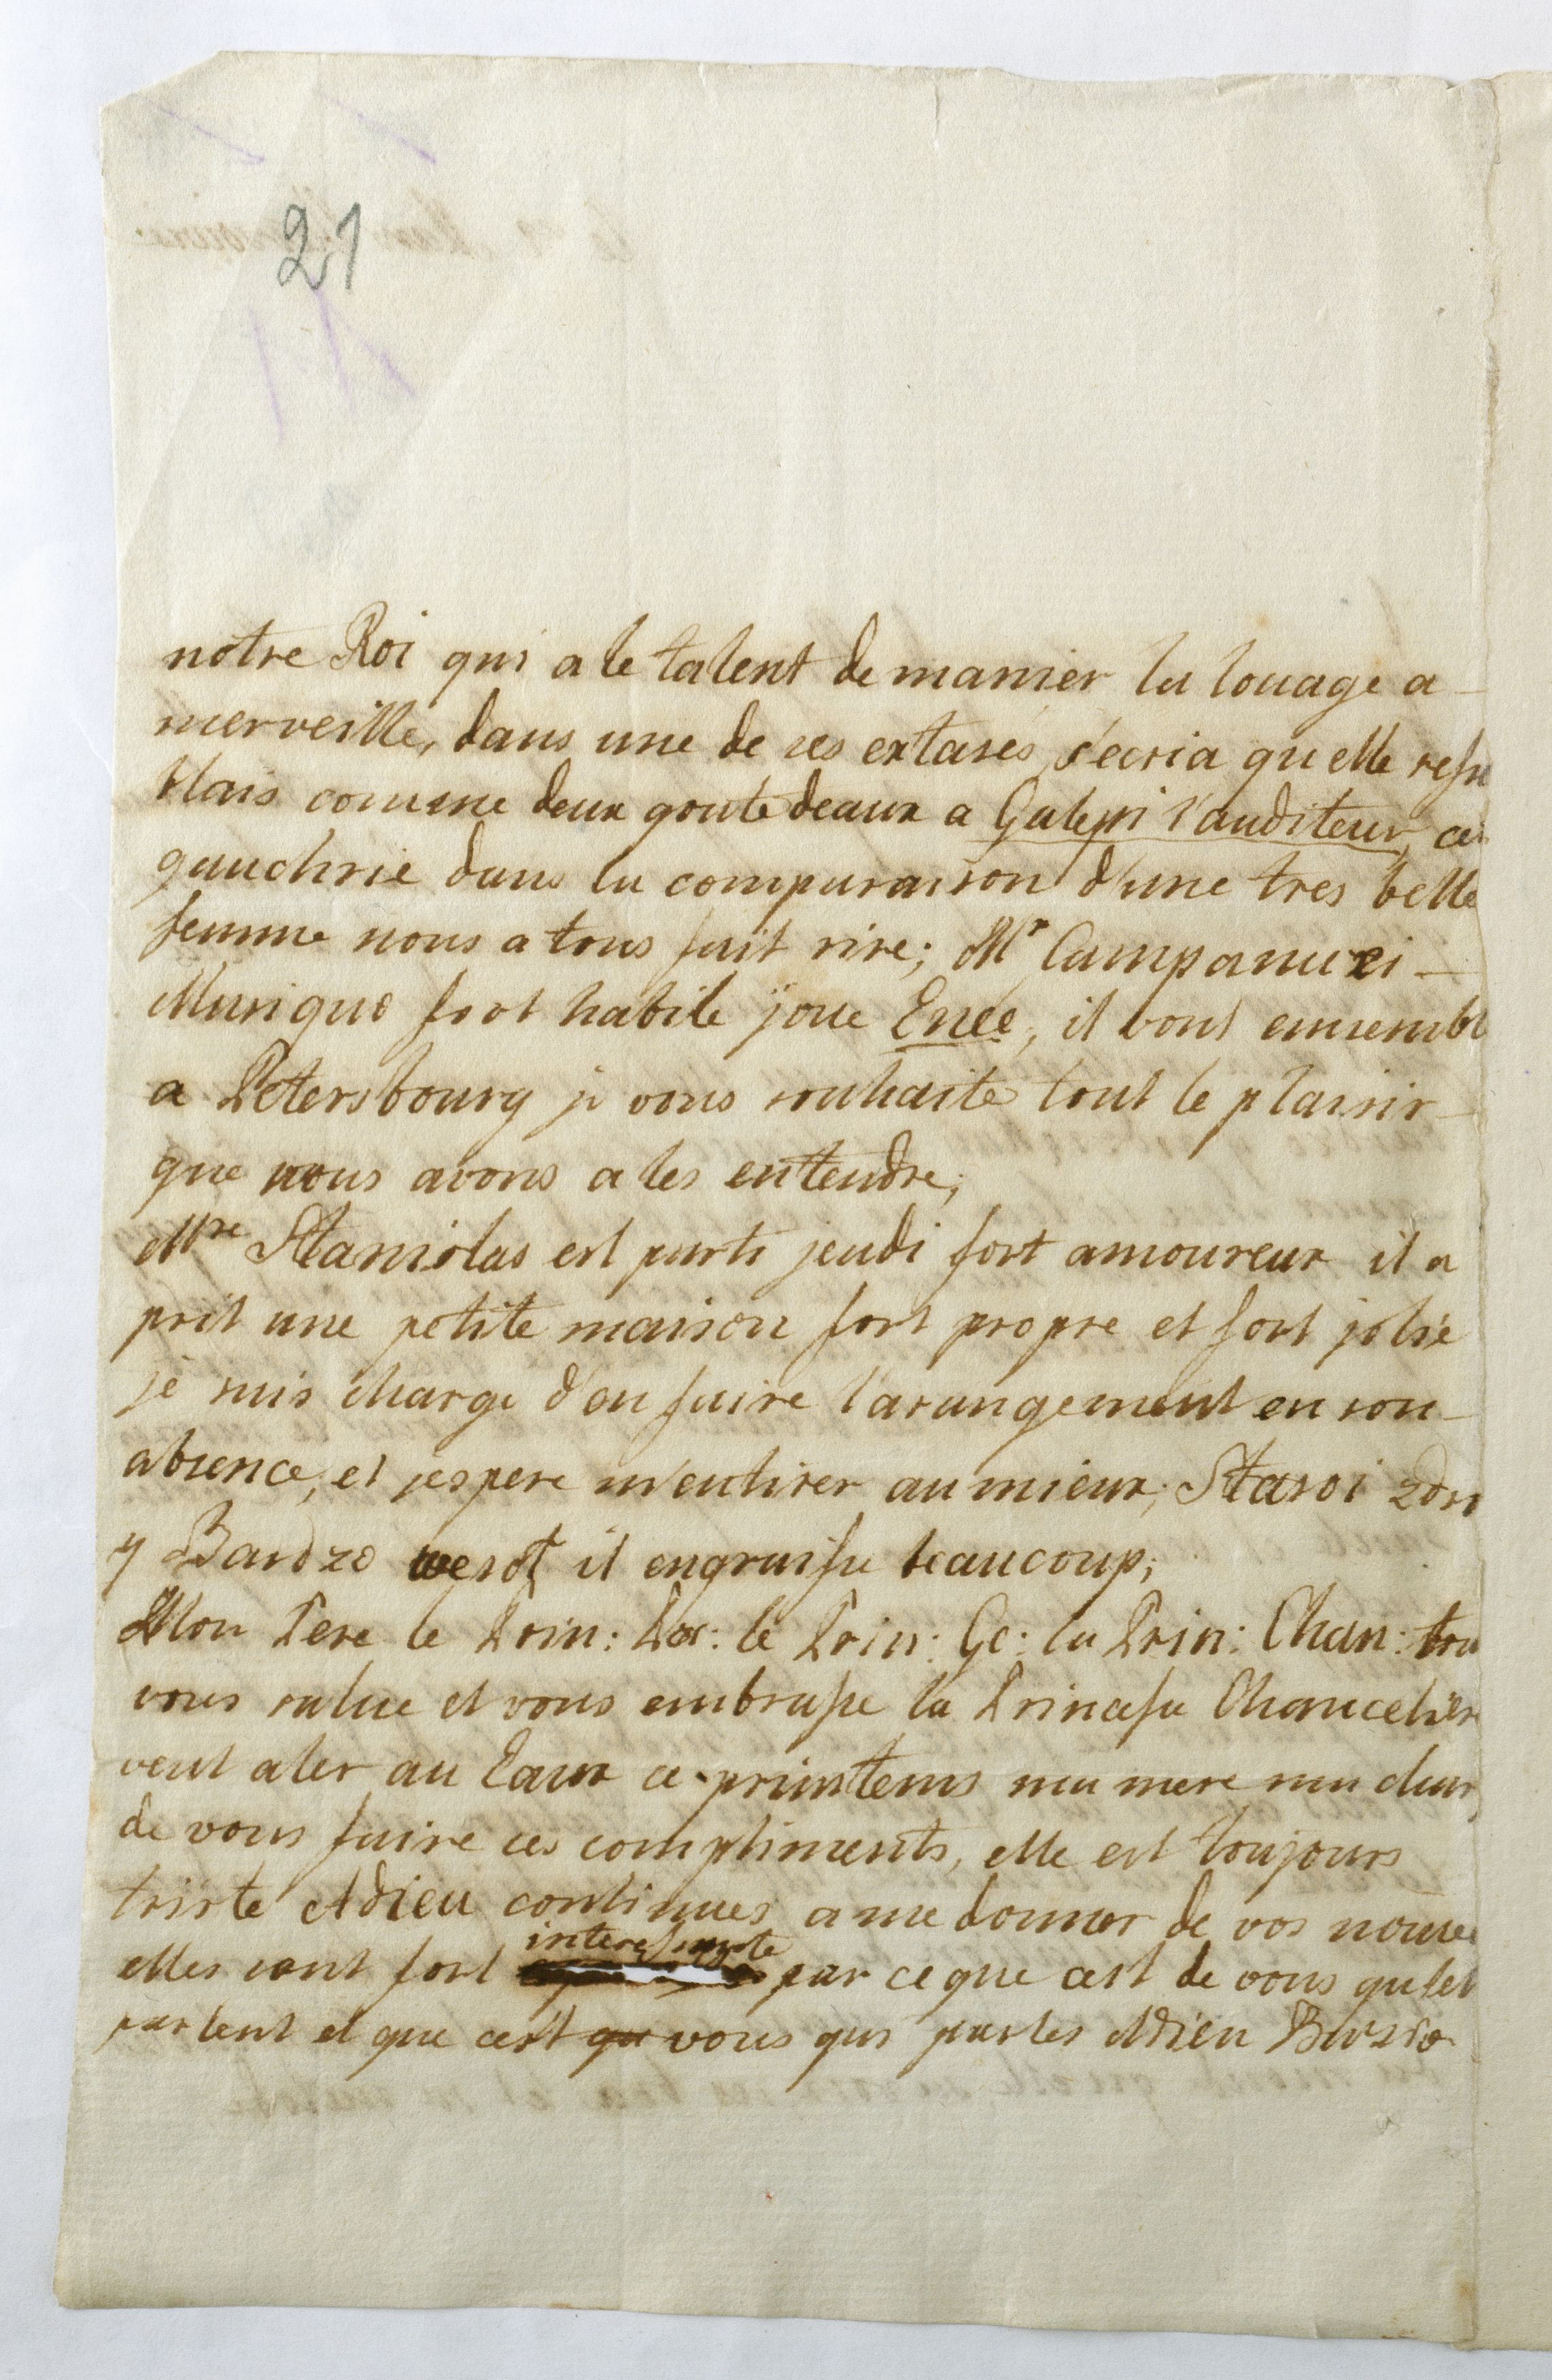 21
notre Roi qui a le talent de manier la louage a
merveille, dans une de ses extases s'ecria qu elle resse
blais comme deux goute deaux a Galepi l'auditeur, ce
gauchrie dans la comparaison d'une tres belle
femme nous a tous fait rire; Mr Campanuzi
Musique fort habile joue Enee, il vont ensembl
a Petersbourg je vous souhaite tout le plaisir
que nous avons a les entendre;
Mre Stanislas est parti jeudi fort amoureux il a
prit une petite maison fort propre et fort jolie
je suis charge d'en faire l'arangement en son
absence, et jespere m'entirer au mieux; Staroi
y Bardzo wesoł il engraisse beaucoup;
Mon Pere le Prin: le Prin: Ge: la Prin: Chan: tou
vous salue et vous embrasse la Princesse Chancelier
veut aler au Eaux ce printems ma mere ma char
de vous faire ces compliments, elle est toujours
triste Adieu continues a me donner de vos nouve
interessante
elles sont fort par ce que cest de vous qu'el
parlent et que cest qu vous qui parles Adieu